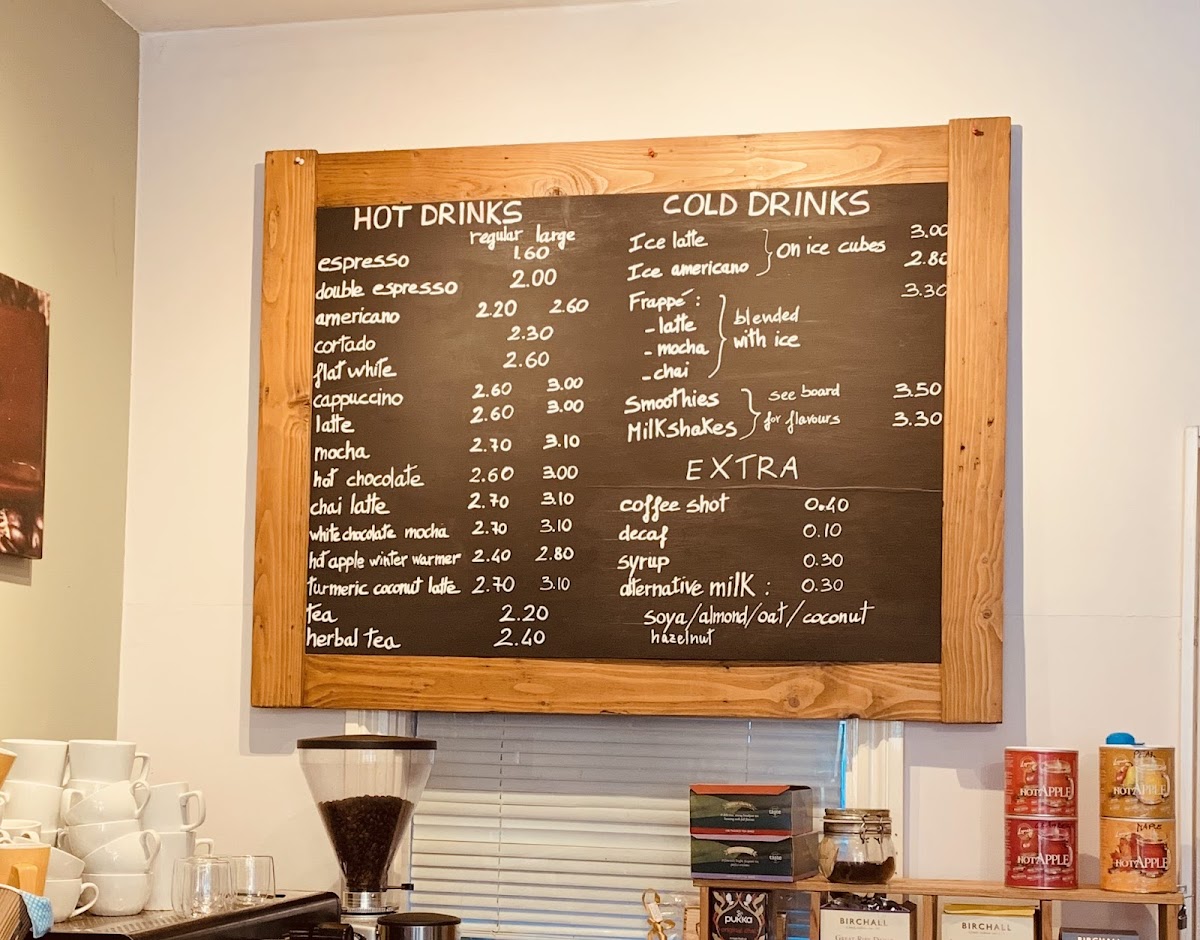 HOT DRINKS
regular large
espresso 1.60
double espresso 2.00
americano 2.20 2.60
cortado 2.30
flat white 2.60
cappuccino 2.60 3.00
latte 2.60 3.00
mocha 2.70 3.10
hot chocolate 2.60 3.00
chai latte 2.70 3.10
white chocolate mocha 2.70 3.10
hot apple winter warmer 2.40 2.80
turmeric coconut latte 2.70 3.10
tea 2.20
herbal tea 2.40
COLD DRINKS
Ice latte 3.00
Ice americano 2.80
On ice cubes
Frappé: 3.30
- latte
- mocha
- chai
blended
with ice
Smoothies 3.50
Milkshakes 3.30
see board
for flavours
EXTRA
coffee shot 0.40
decaf 0.10
syrup 0.30
alternative milk: 0.30
soya/almond/oat/coconut
hazelnut
HOT APPLE
HOT APPLE
HOT APPLE
HOT APPLE
pukka
BIRCHALL
BIRCHALL